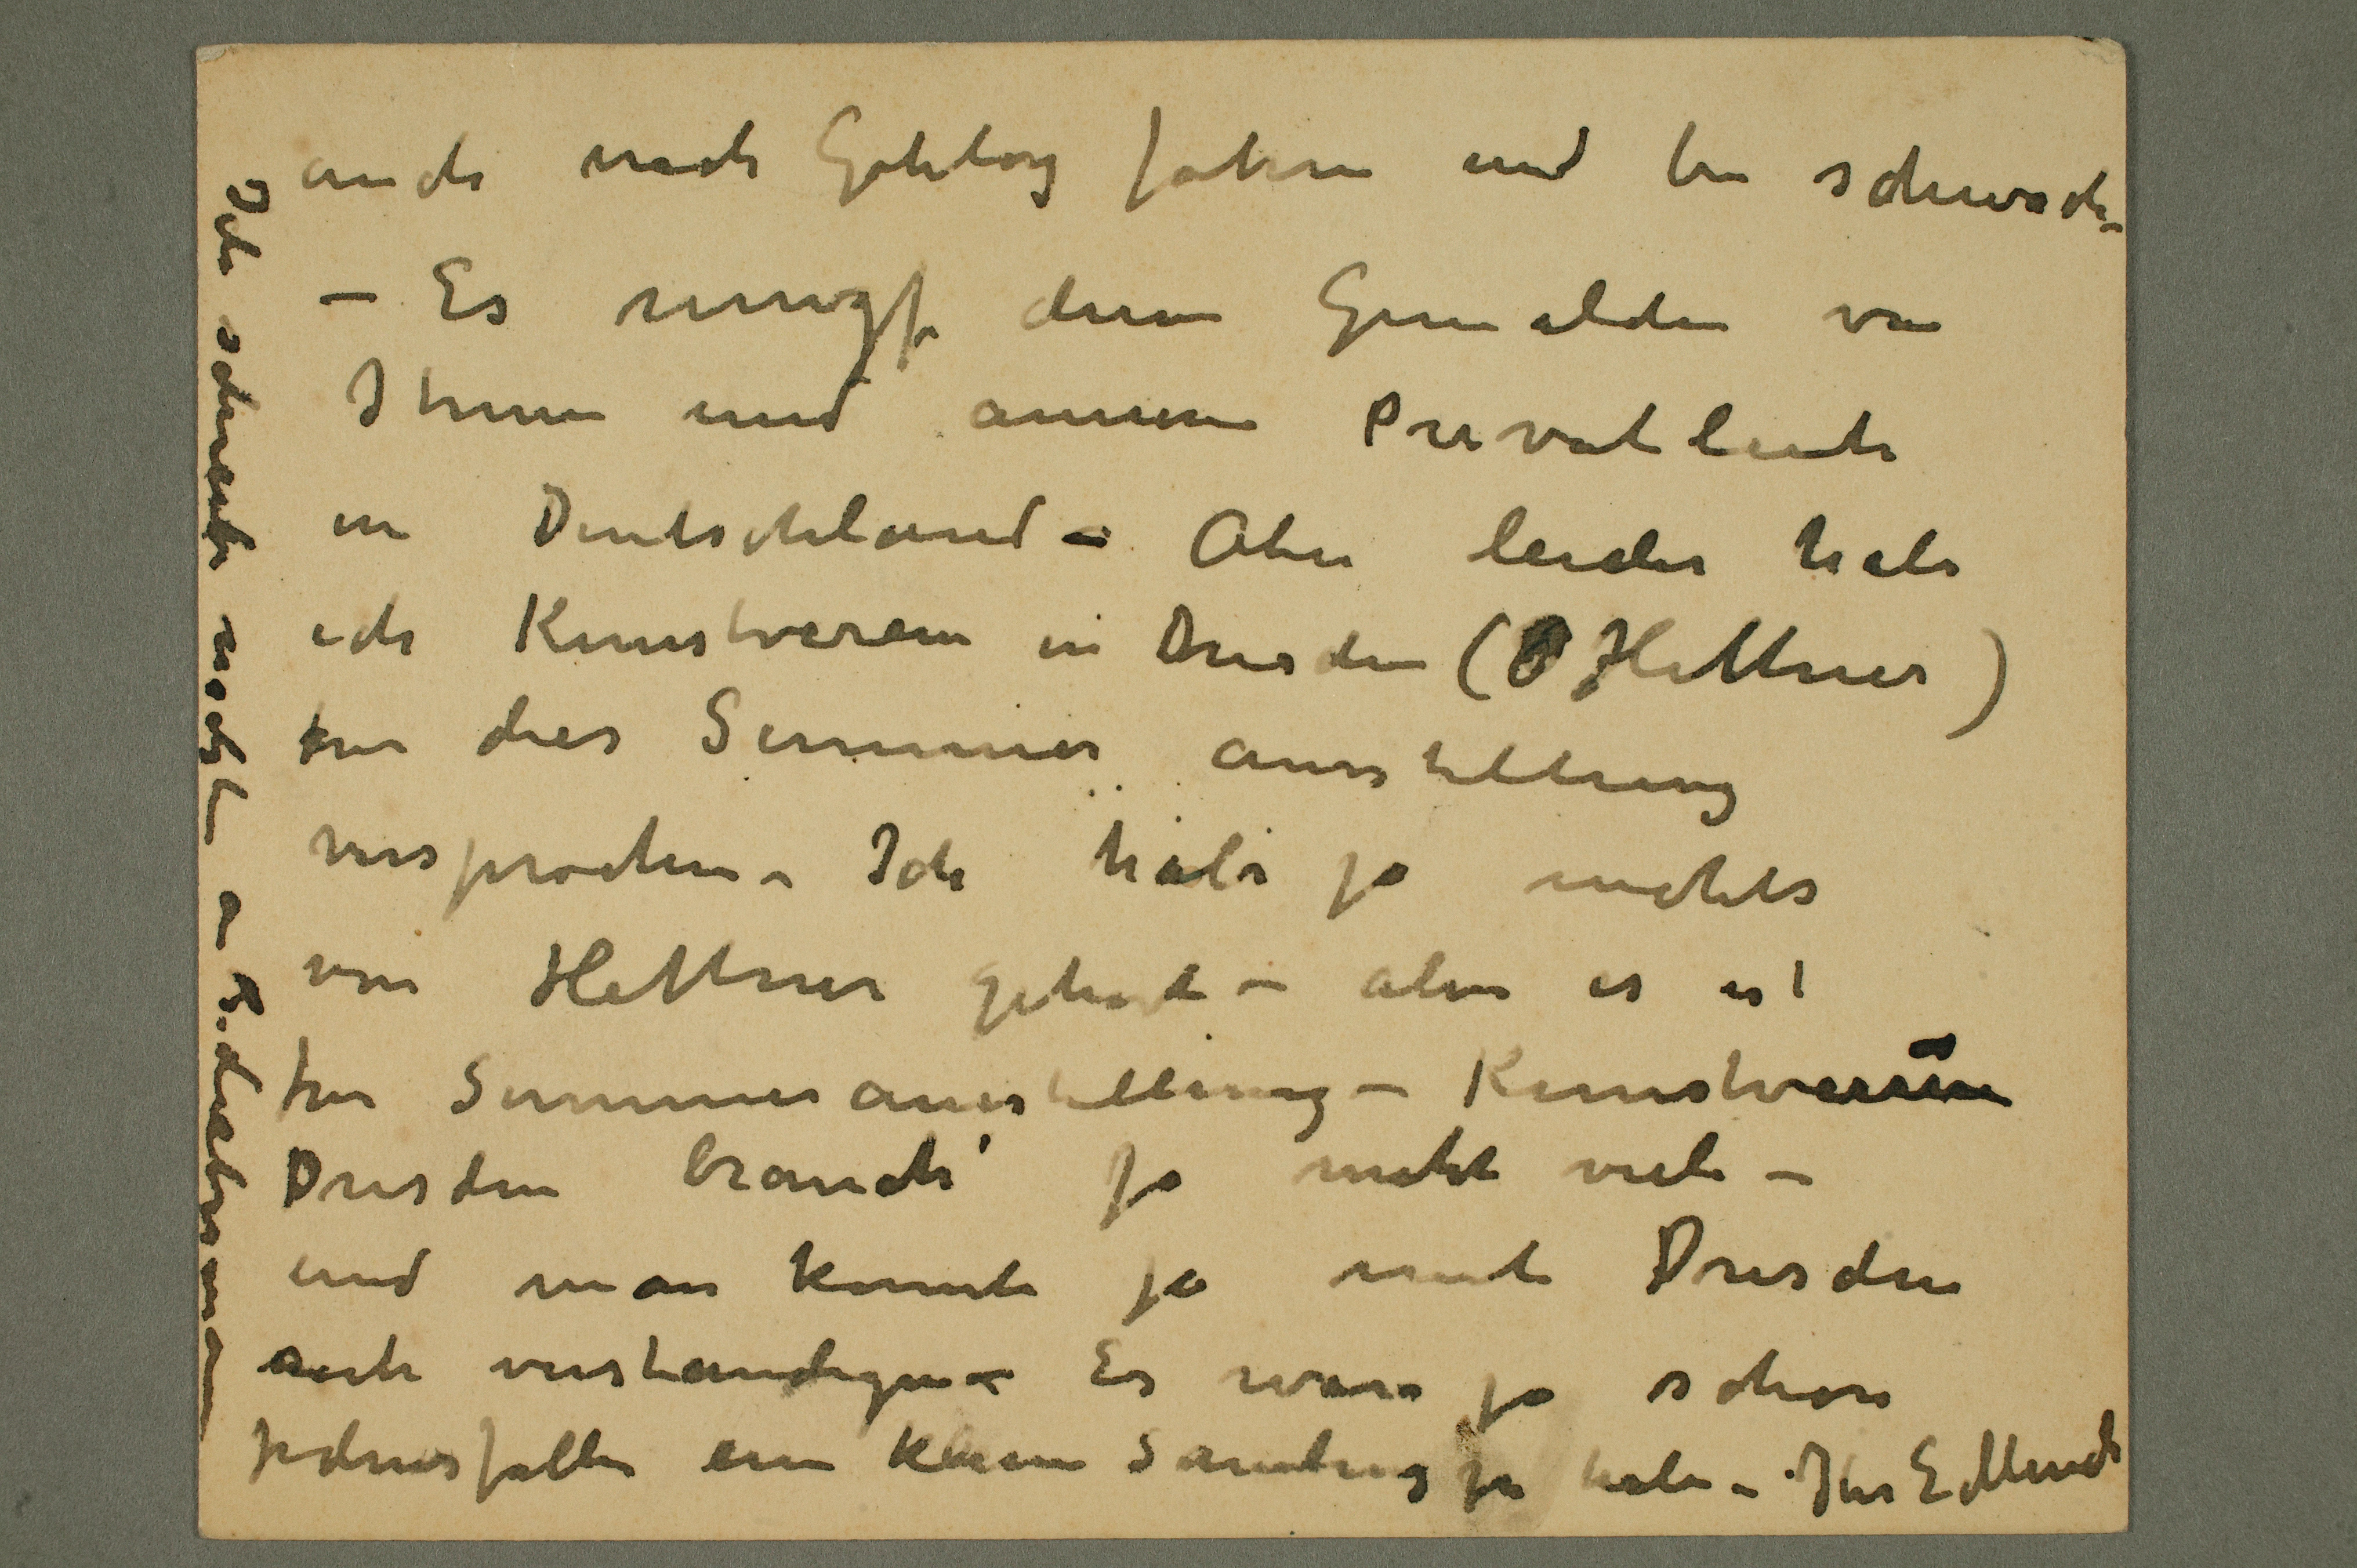 auch nach Goteborg fahren und bin schwach –
– Es  diese Gemälden von
Ihnen und anderen Privatleute
in Deutschland – Aber leider habe
ich Kunstverein in Dresden (O Hettner)
für dies Sommer ausstellung
versprochen – Ich habe ja nichts
von Hettner gehört – aber es ist
für Sommerausstellung – Kunstverein
Dresden brauch' ja nicht viele –
und man konnte ja mit Dresden
sich verständigen – Es wäre ja schon
jedenfalls eine kleine Samlung zu haben – Ihr E Munch
Ich schreibe  an